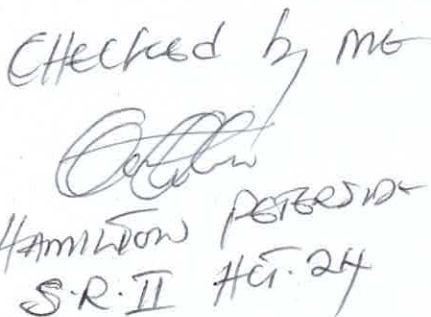 CHecked by me
HAMILTON PETERSIDE
S.R.II HCJ.24